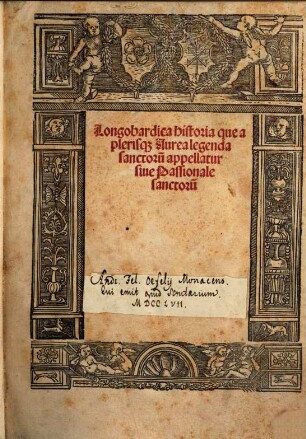 Longobardica historia que a
plerisqꝫ Aurea legenda
sanctorū appellatur
siue Passionale
sanctorū
Andr. Fel. Oefelij Monacens.
M DCC LVII.